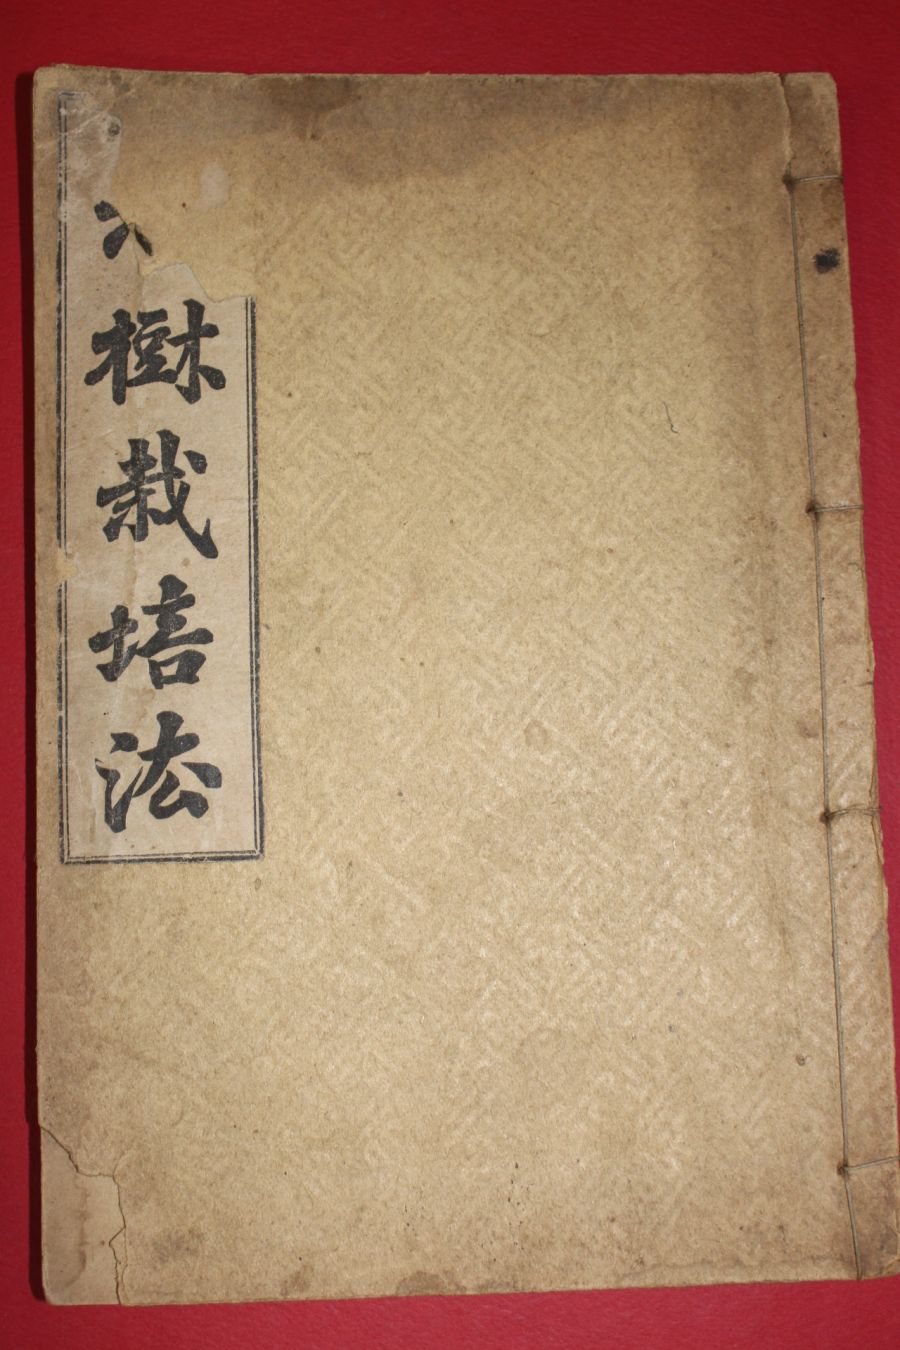 樹栽培法